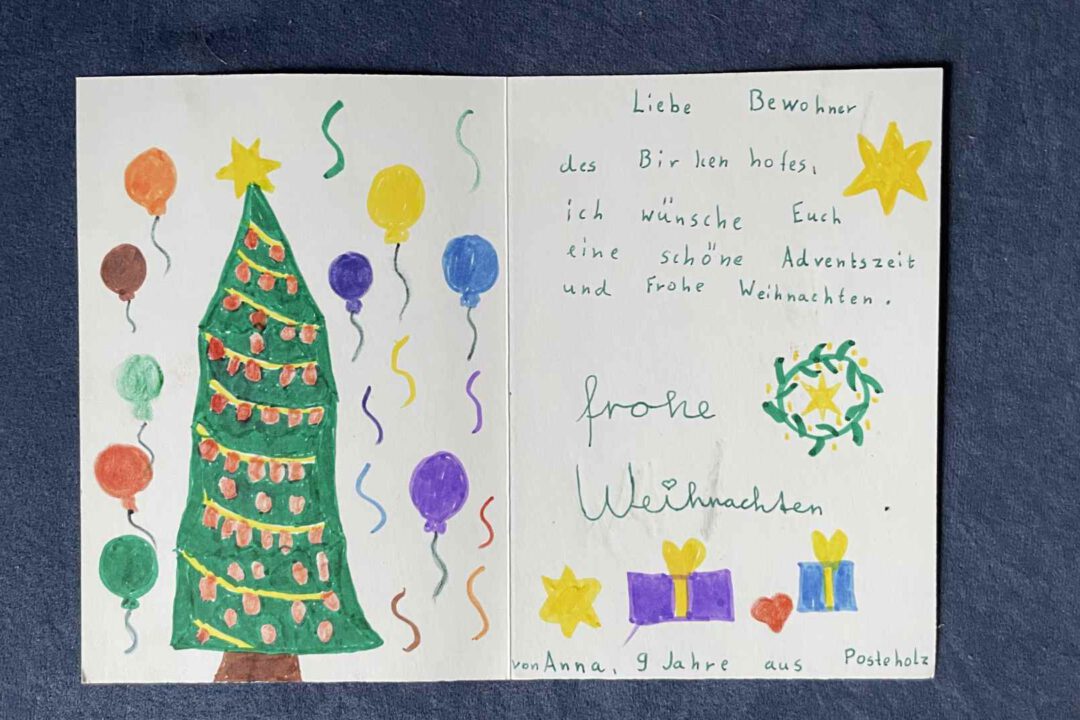 Liebe Bewohner
des Birkenhofes,
ich wünsche Euch
eine schöne Adventszeit
und Frohe Weihnachten.
frohe
Weihnachten.
von Anna, 9 Jahre aus Posteholz